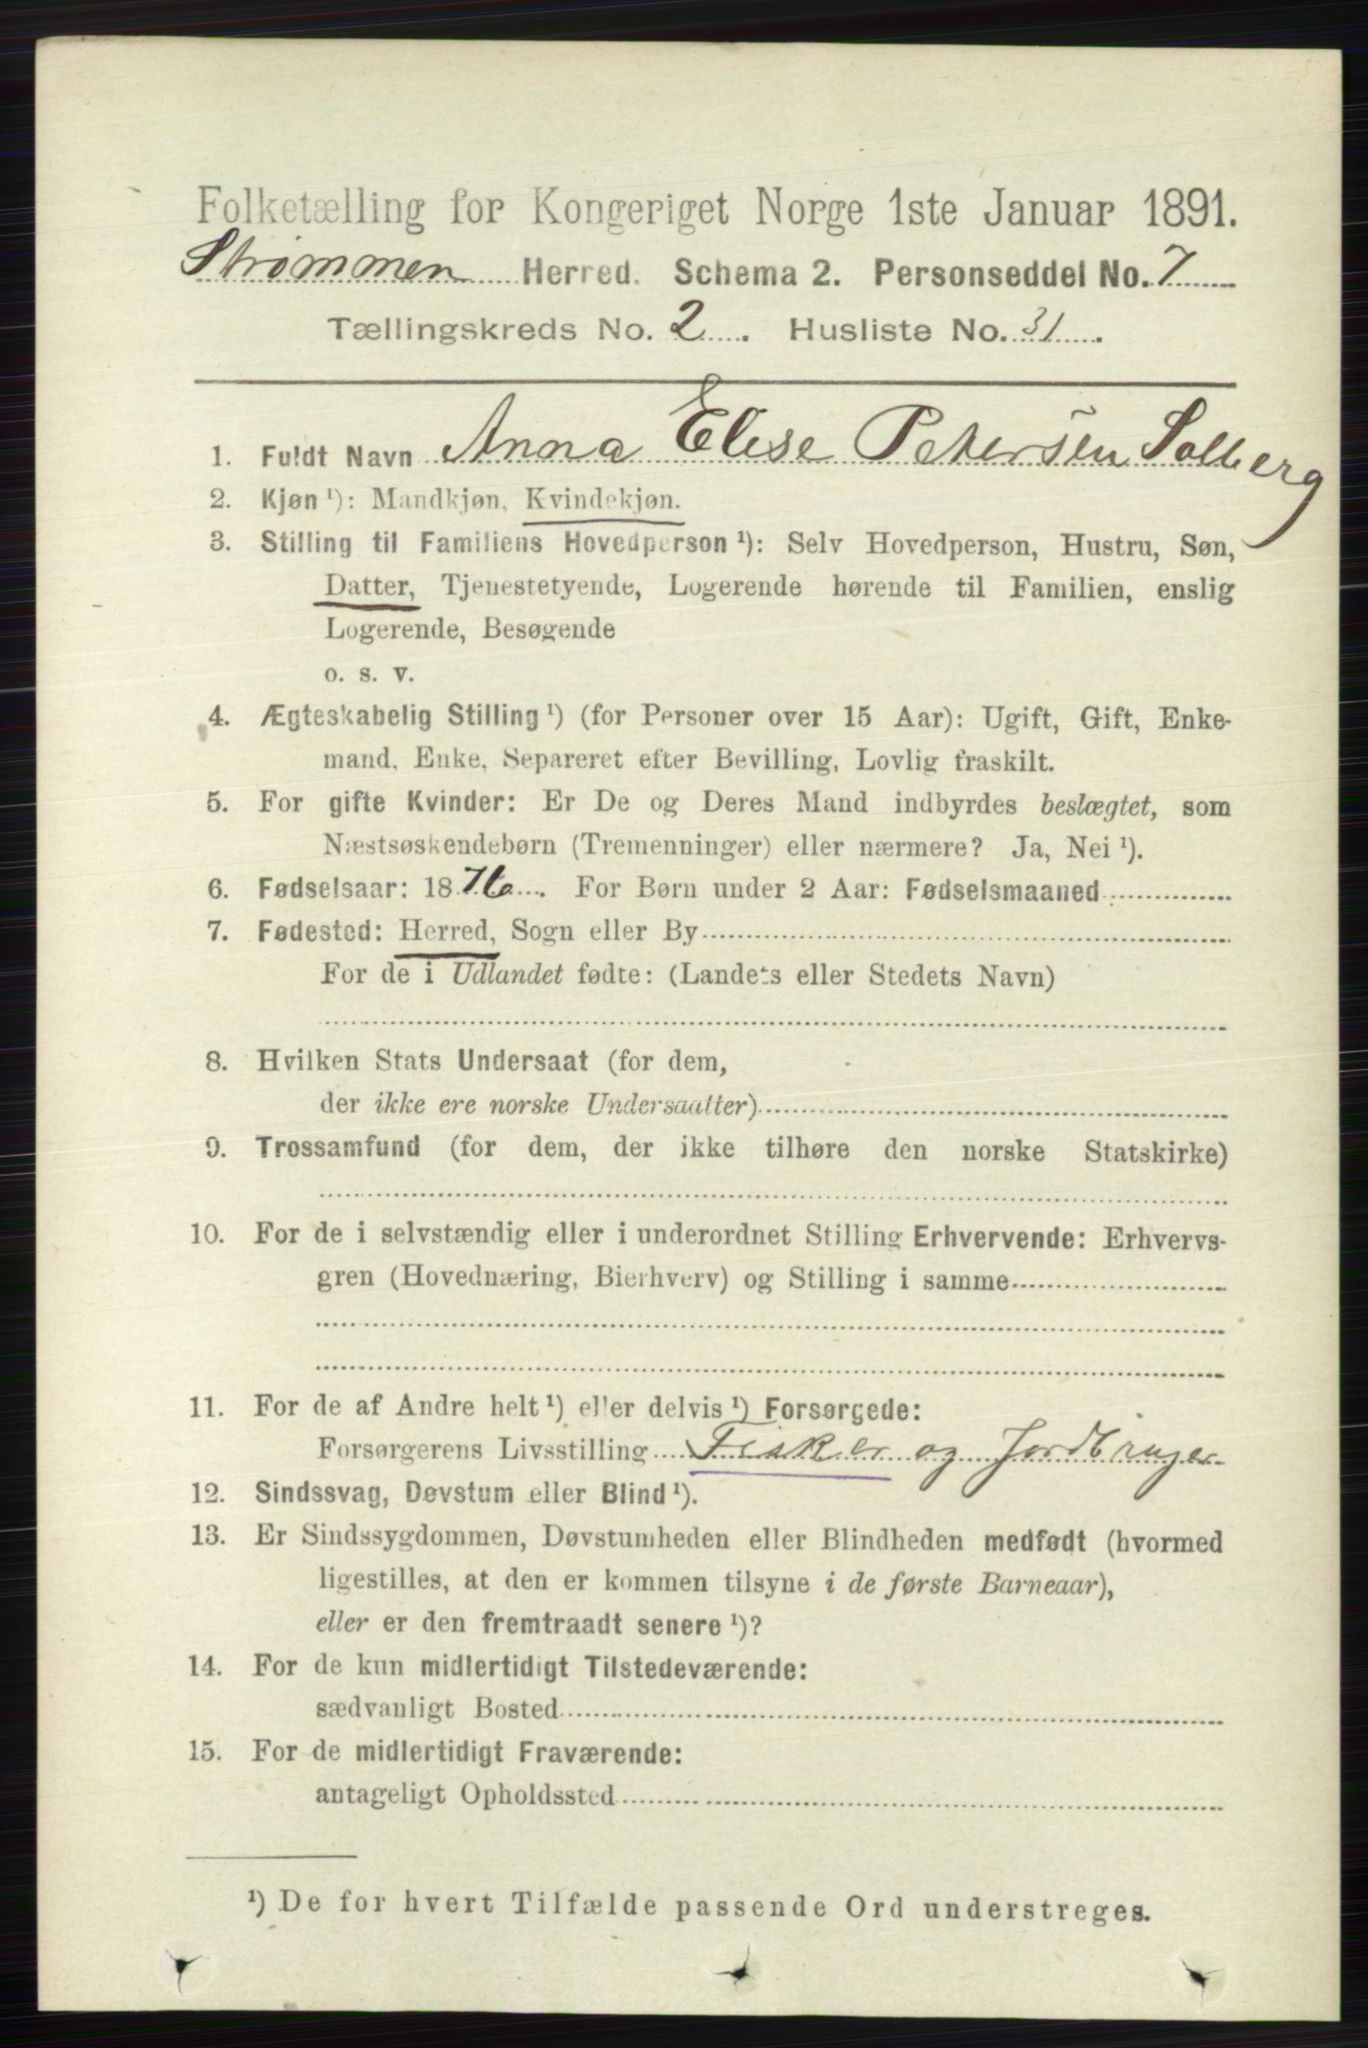 Folketælling for Kongeriget Norge 1ste Januar 1891.
Strømmen Herred. Schema 2. Personseddel No. 7
Tællingskreds No. 2. Husliste No. 31.
1. Fuldt Navn Anna Elise Petersen Solberg
2. Kjøn ¹): Mandkjøn, Kvindekjøn.
3. Stilling til Familiens Hovedperson ¹): Selv Hovedperson, Hustru, Søn,
Datter, Tjenestetyende, Logerende hørende til Familien, enslig
Logerende, Besøgende
o. s. v.
4. Ægteskabelig Stilling ¹) (for Personer over 15 Aar): Ugift, Gift, Enke-
mand, Enke, Separeret efter Bevilling, Lovlig fraskilt.
5. For gifte Kvinder: Er De og Deres Mand indbyrdes beslægtet, som
Næstsøskendebørn (Tremenninger) eller nærmere? Ja, Nei ¹).
6. Fødselsaar: 1876. For Børn under 2 Aar: Fødselsmaaned
7. Fødested: Herred, Sogn eller By
For de i Udlandet fødte: (Landets eller Stedets Navn)
8. Hvilken Stats Undersaat (for dem,
der ikke ere norske Undersaatter)
9. Trossamfund (for dem, der ikke tilhøre den norske Statskirke)
10. For de i selvstændig eller i underordnet Stilling Erhvervende: Erhvervs-
gren (Hovednæring, Bierhverv) og Stilling i samme
11. For de af Andre helt ¹) eller delvis ¹) Forsørgede:
Forsørgerens Livsstilling Fisker og Jordbruger
12. Sindssvag, Døvstum eller Blind ¹).
13. Er Sindssygdommen, Døvstumheden eller Blindheden medfødt (hvormed
ligestilles, at den er kommen tilsyne i de første Barneaar),
eller er den fremtraadt senere ¹)?
14. For de kun midlertidigt Tilstedeværende:
sædvanligt Bosted
15. For de midlertidigt Fraværende:
antageligt Opholdssted
¹) De for hvert Tilfælde passende Ord understreges.